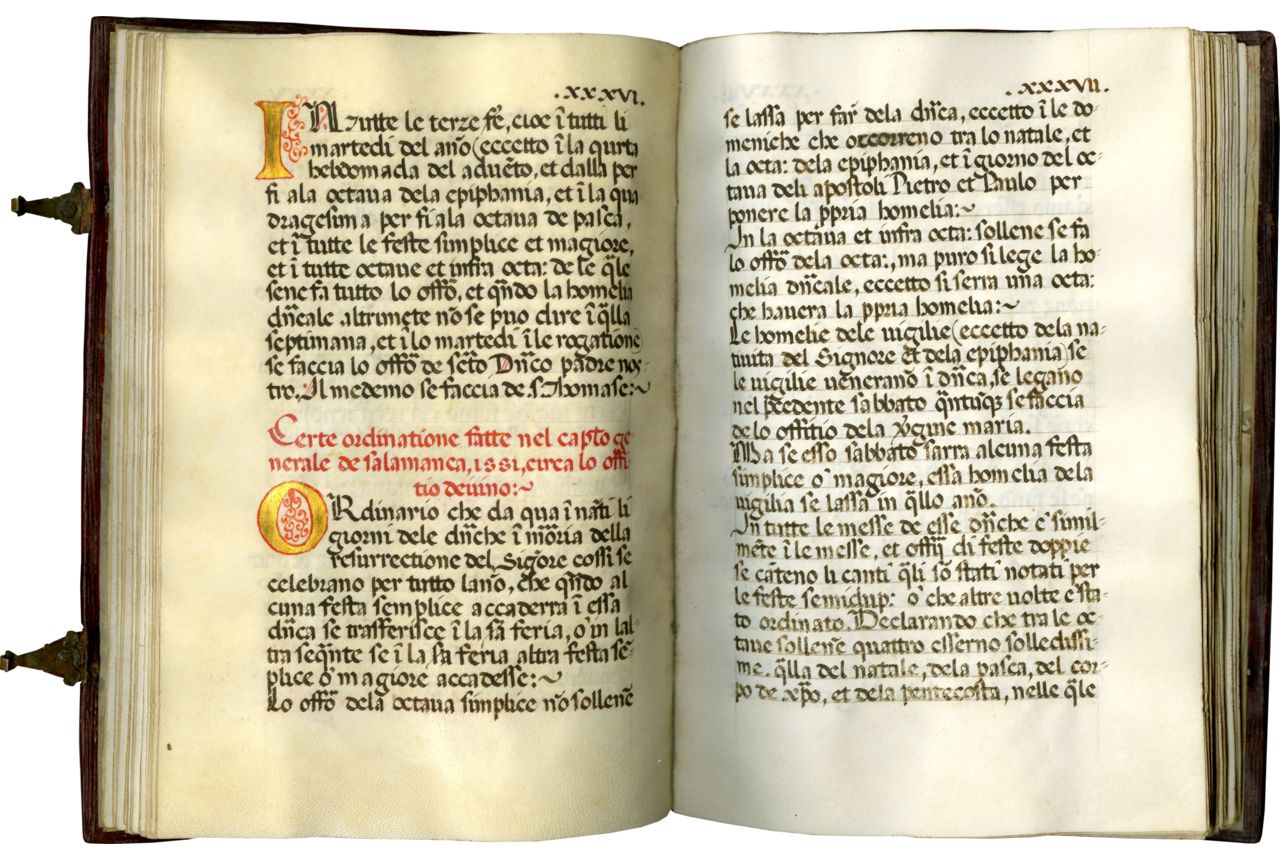 .XXXVI.
IN tutte le terze fẽ, cioe ĩ tutti li
martedi del ano (eccetto ĩ la qurta
hebdomada del aduẽto, et dalla per
fi ala octaua dela epiphania, et ĩ la qua
dragesima per fi ala octaua de pasca,
et ĩ tutte le feste simplice et magiore,
et ĩ tutte octaue et infra octa: de le q̃le
se ne fa tutto lo offõ, et qñdo la homelia
dñcale altrimẽte nõ se puo dire ĩ q̃lla
septimana, et ĩ lo martedi ĩ le rogatione
se faccia lo offõ de sctõ Dñco padre nos-
tro. Il medemo se faccia de .S. Thomase:~
Certe ordinatione fatte nel capto ge
nerale de salamanca, 1551, circa lo offi
tio deuino:~
ORdinario che da qua ĩ nãti li
giorni dele dñche ĩ mõria della
resurrectione del Signore cossi se
celebrano per tutto lano, che qñdo al
cuna festa semplice accaderra ĩ essa
dñca se trasferisce ĩ la sã feria, o' in lal-
tra seqñte se ĩ la sa feria altra festa sẽ-
plice o' magiore accadesse:~
Lo offõ dela octaua simplice nõ sollenẽ
.XXXVII.
se lassa per far dela dñca, eccetto ĩ le do-
meniche che occorreno tra lo natale, et
la octa: dela epiphania, et ĩ giorno del oc-
taua deli apostoli Pietro et Paulo per
ponere la ppria homelia:~
In la octaua et infra octa: sollene se fa
lo offõ dela octa:, ma puro si lege la ho-
melia dñcale, eccetto si serra una octa:
che hauera la ppria homelia:~
Le homelie dele uigilie (eccetto de la na-
tiuita del Signore et dela epiphania) se
le uigilie uenerano ĩ dñca, se legano
nel pcedente sabbato qñtusq̃ se faccia
de lo offitio dela Vgine maria.
Ma se esso sabbato sarra alcuna festa
simplice o' magiore, essa homelia dela
uigilia se lassa in q̃llo ano.
In tutte le messe de esse dñche e' simil-
mẽte ĩ le messe, et offij di feste doppie
se cãteno li canti q̃li sõ stati notati per
le feste semidup: o' che altre uolte e' sta-
to ordinato. Declarando che tra le oc-
taue sollenẽ quattro esserno solledissi-
me. q̃lla del natale, dela pasca, del cor-
po de xp̃o, et dela pentecosta, nelle q̃le